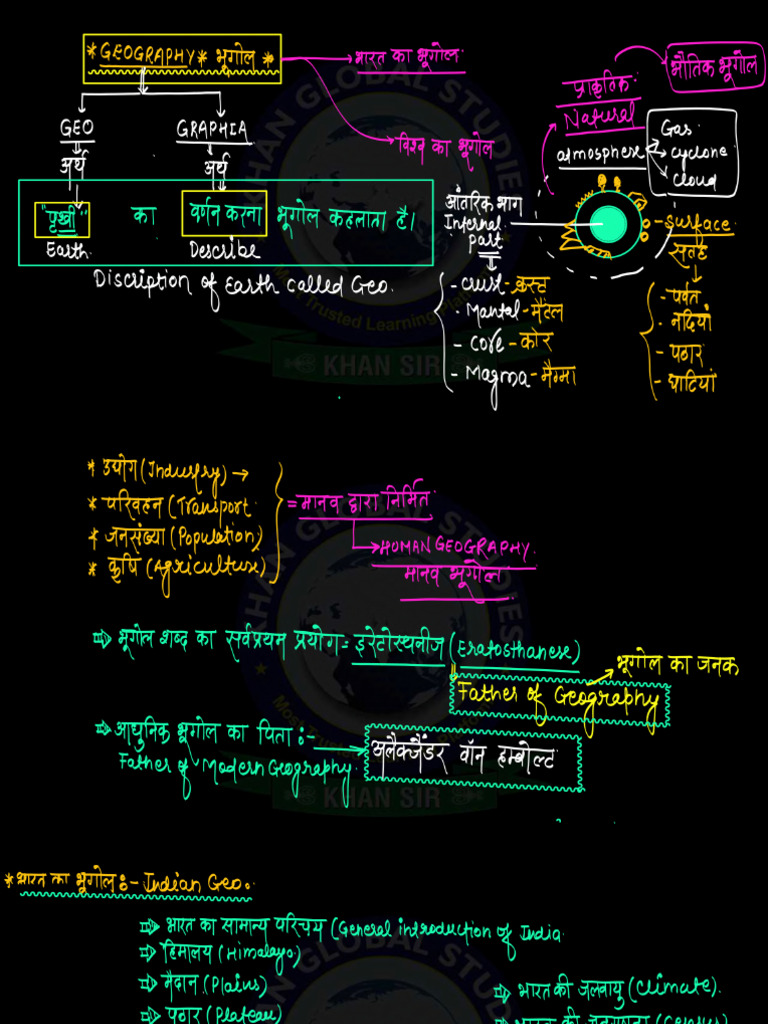 *GEOGRAPHY* भूगोल *
भारत का भूगोल
विश्व का भूगोल
GEO
GRAPHIA
अर्थ
अर्थ
"पृथ्वी" का वर्णन करना भूगोल कहलाता है।
Earth
Describe
Discription of Earth called Geo.
प्राकृतिक
Natural
भौतिक भूगोल
atmosphere
Gas
cyclone
cloud
आंतरिक भाग
Internal part
- Crust - क्रस्ट
- Mantal - मैंटल
- Core - कोर
- Magma - मैग्मा
- Surface
सतह
- पर्वत
- नदियां
- पठार
- घाटियां
* उद्योग (Industry) →
* परिवहन (Transport
* जनसंख्या (Population)
* कृषि (Agriculture)
= मानव द्वारा निर्मित
HUMAN GEOGRAPHY.
मानव भूगोल
⇒ भूगोल शब्द का सर्वप्रथम प्रयोग = इरेटोस्थनीज (Eratosthanese)
Father of Geography
भूगोल का जनक
⇒ आधुनिक भूगोल का पिता :-
अलैक्जेंडर वॉन हम्बोल्ट
Father of Modern Geography.
* भारत का भूगोल :- Indian Geo.
⇒ भारत का सामान्य परिचय (General introduction of India.
⇒ हिमालय (Himalaya)
⇒ मैदान (Plains)
⇒ पठार (Plateau)
⇒ भारत की जलवायु (Climate).
⇒ भारत की जनगणना (Census)
KHAN GLOBAL STUDIES
Most Trusted Learning Platform
KHAN SIR
KHAN GLOBAL STUDIES
KHAN SIR
KHAN GLOBAL STUDIES